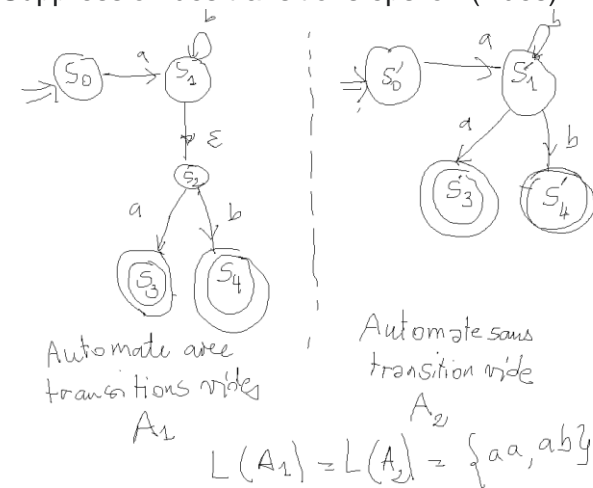 b
a
S0
S1
ε
S2
a
b
S3
S4
Automate avec
transitions vides
A1
b
a
S0'
S1'
a
b
S3'
S4'
Automate sans
transition vide
A2
L(A1) = L(A2) = {aa, ab}